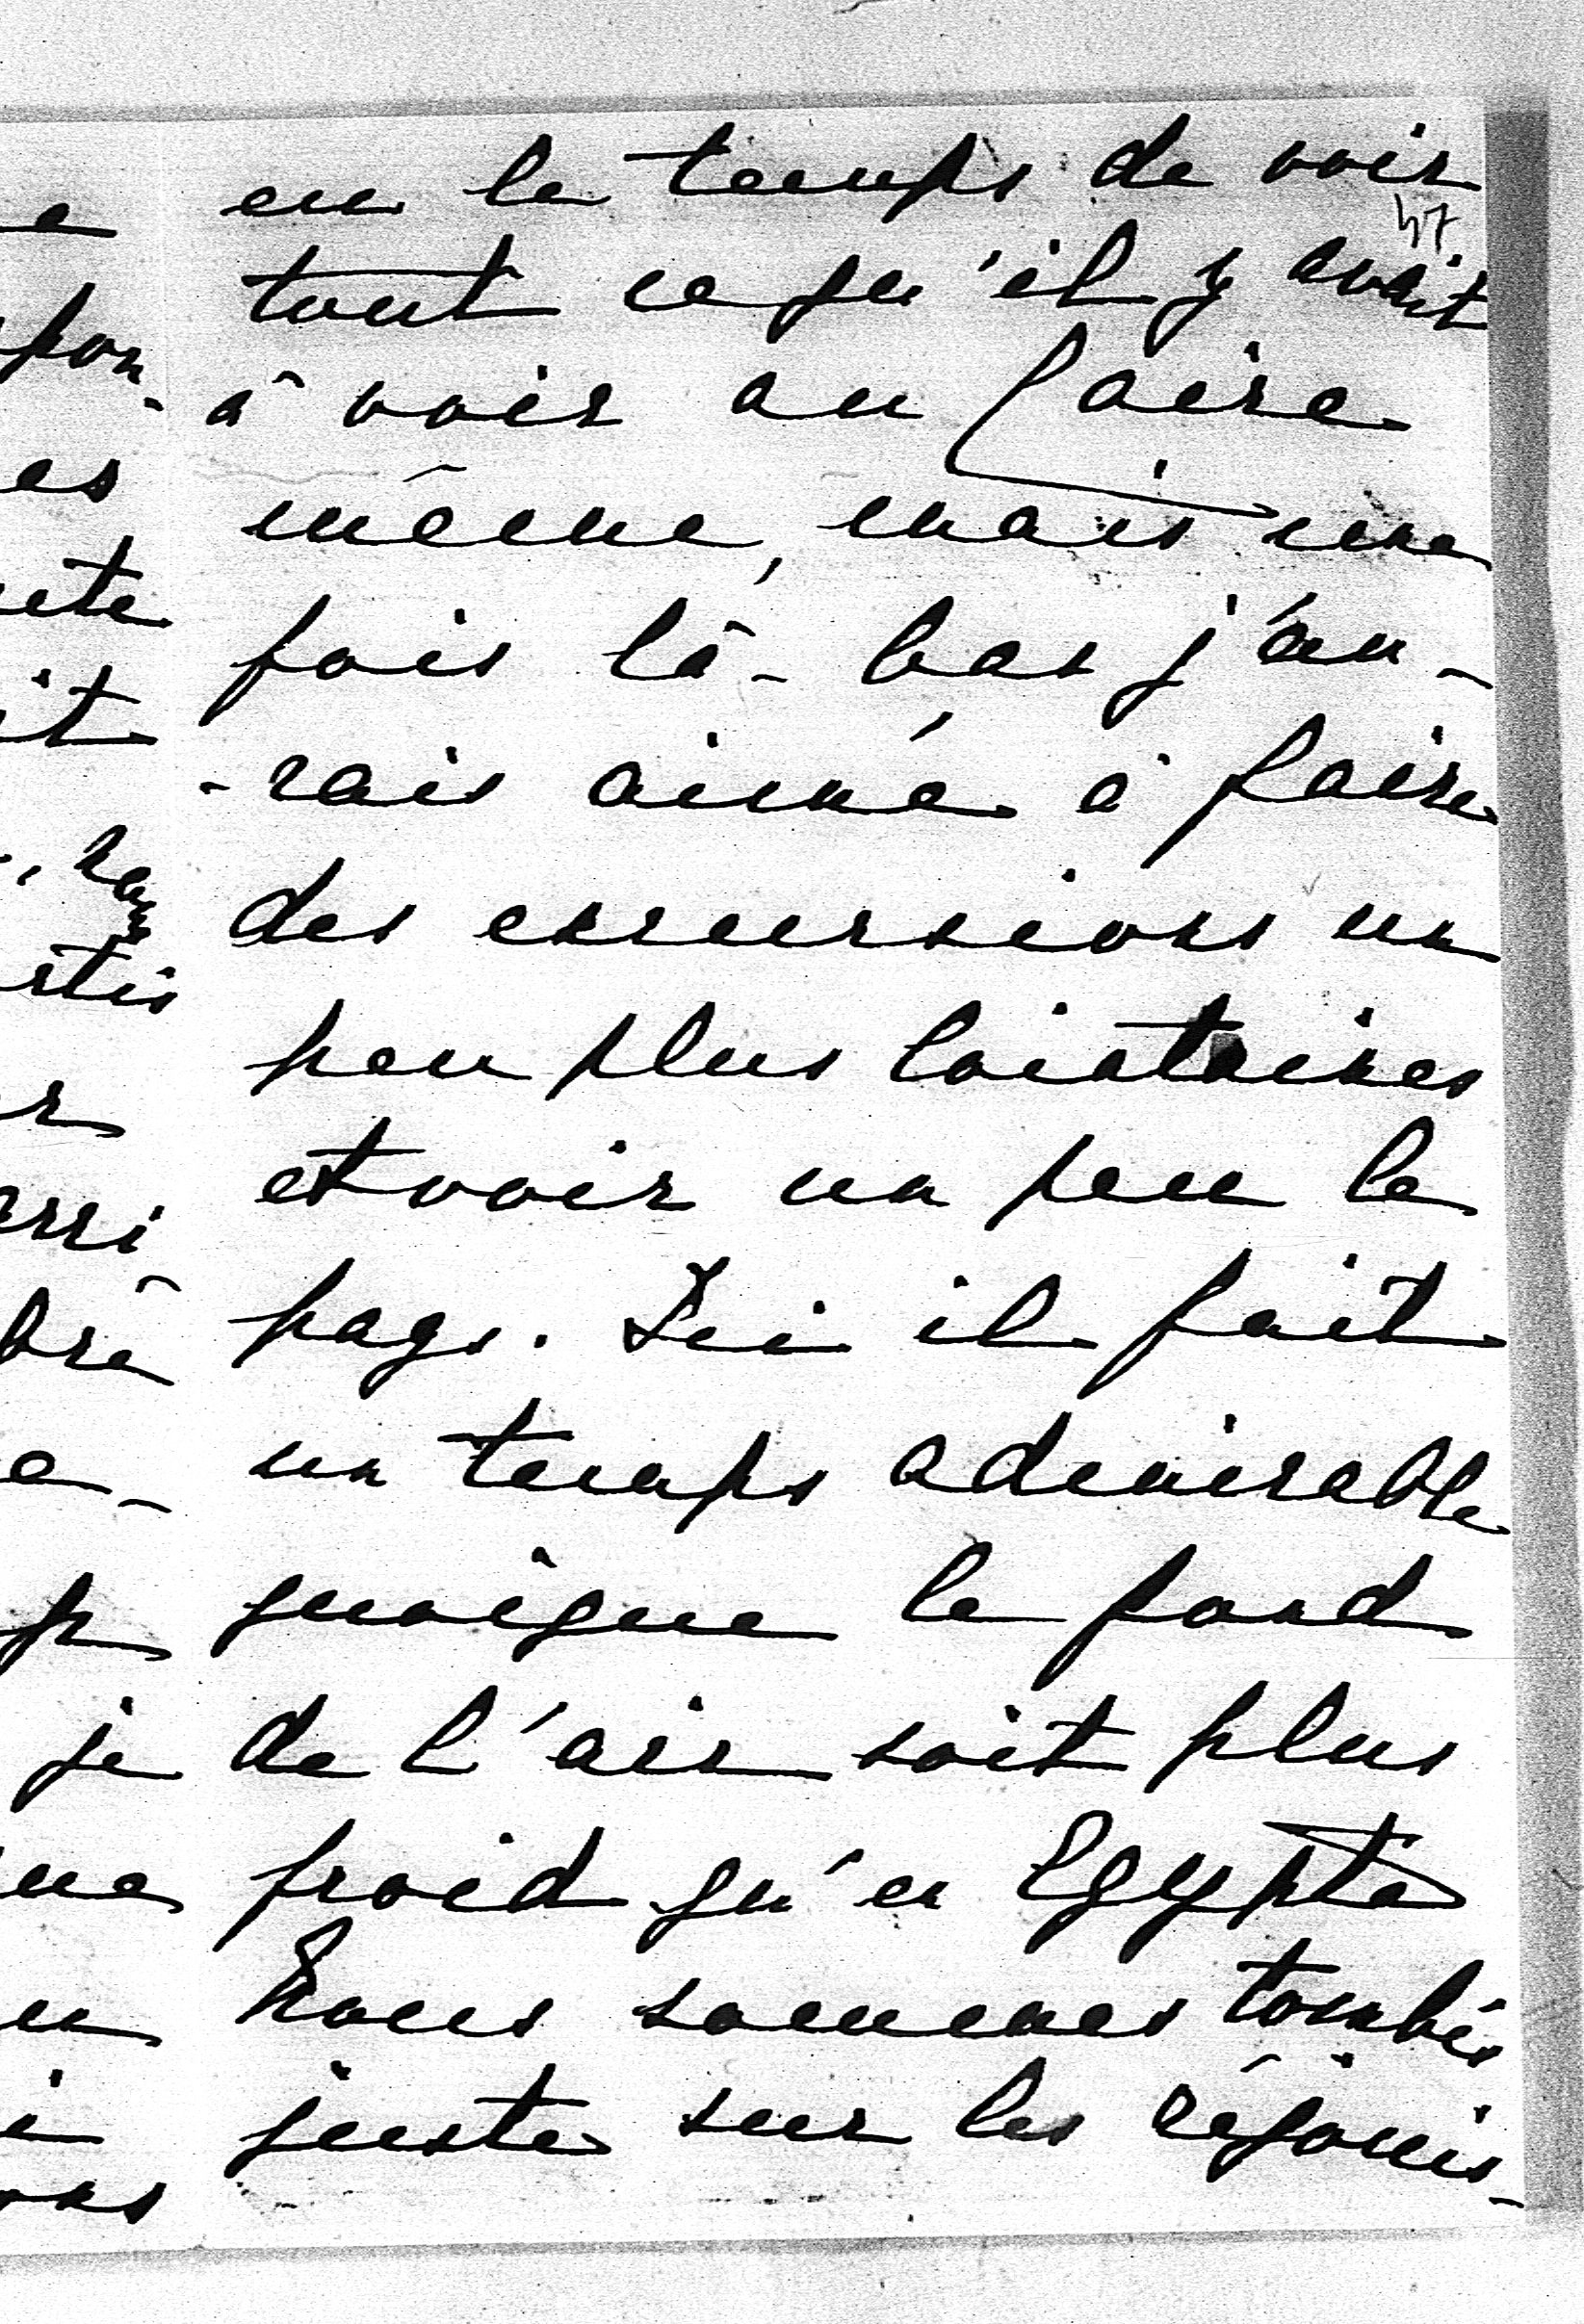 eu le temps de voir
47
tout ce qu'il y avait
à voir au Caire
même, mais une
fois là-bas j'au-
-rais aimé à faire
des excursions un
peu plus lointaines
et voir un peu le
pays. Ici il fait
un temps admirable
quoique le fond
de l'air soit plus
froid qu'en Egypte
Nous sommes tombés
juste sur les réjouis-